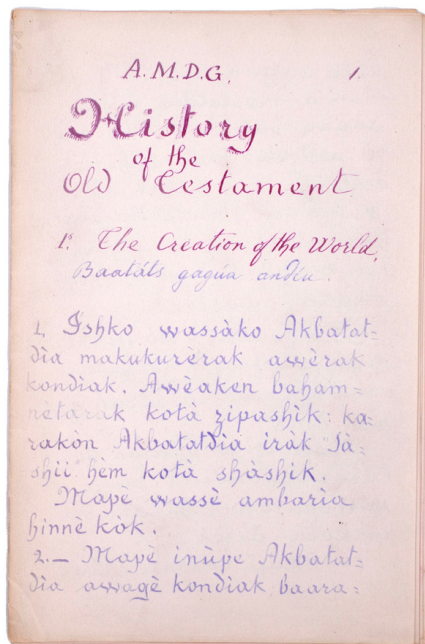 A.M.D.G. 1
History
of the
Old Testament
1° The Creation of the World.
Baatáts gagúa andíu.
1. Ishko wassàko Akbatat=
dìa makukurèrak awèrak
kondìak. Awèaken baham=
nètarak kotà zipashìk: ka=
rakòn Akbatatdià iràk "Ià=
shii" hèm kotà shàshik.
Mapè wassè ambarìa
hinnè kòk.
2.— Mapè inùpe Akbatat=
dìa awagè kondìak baara=